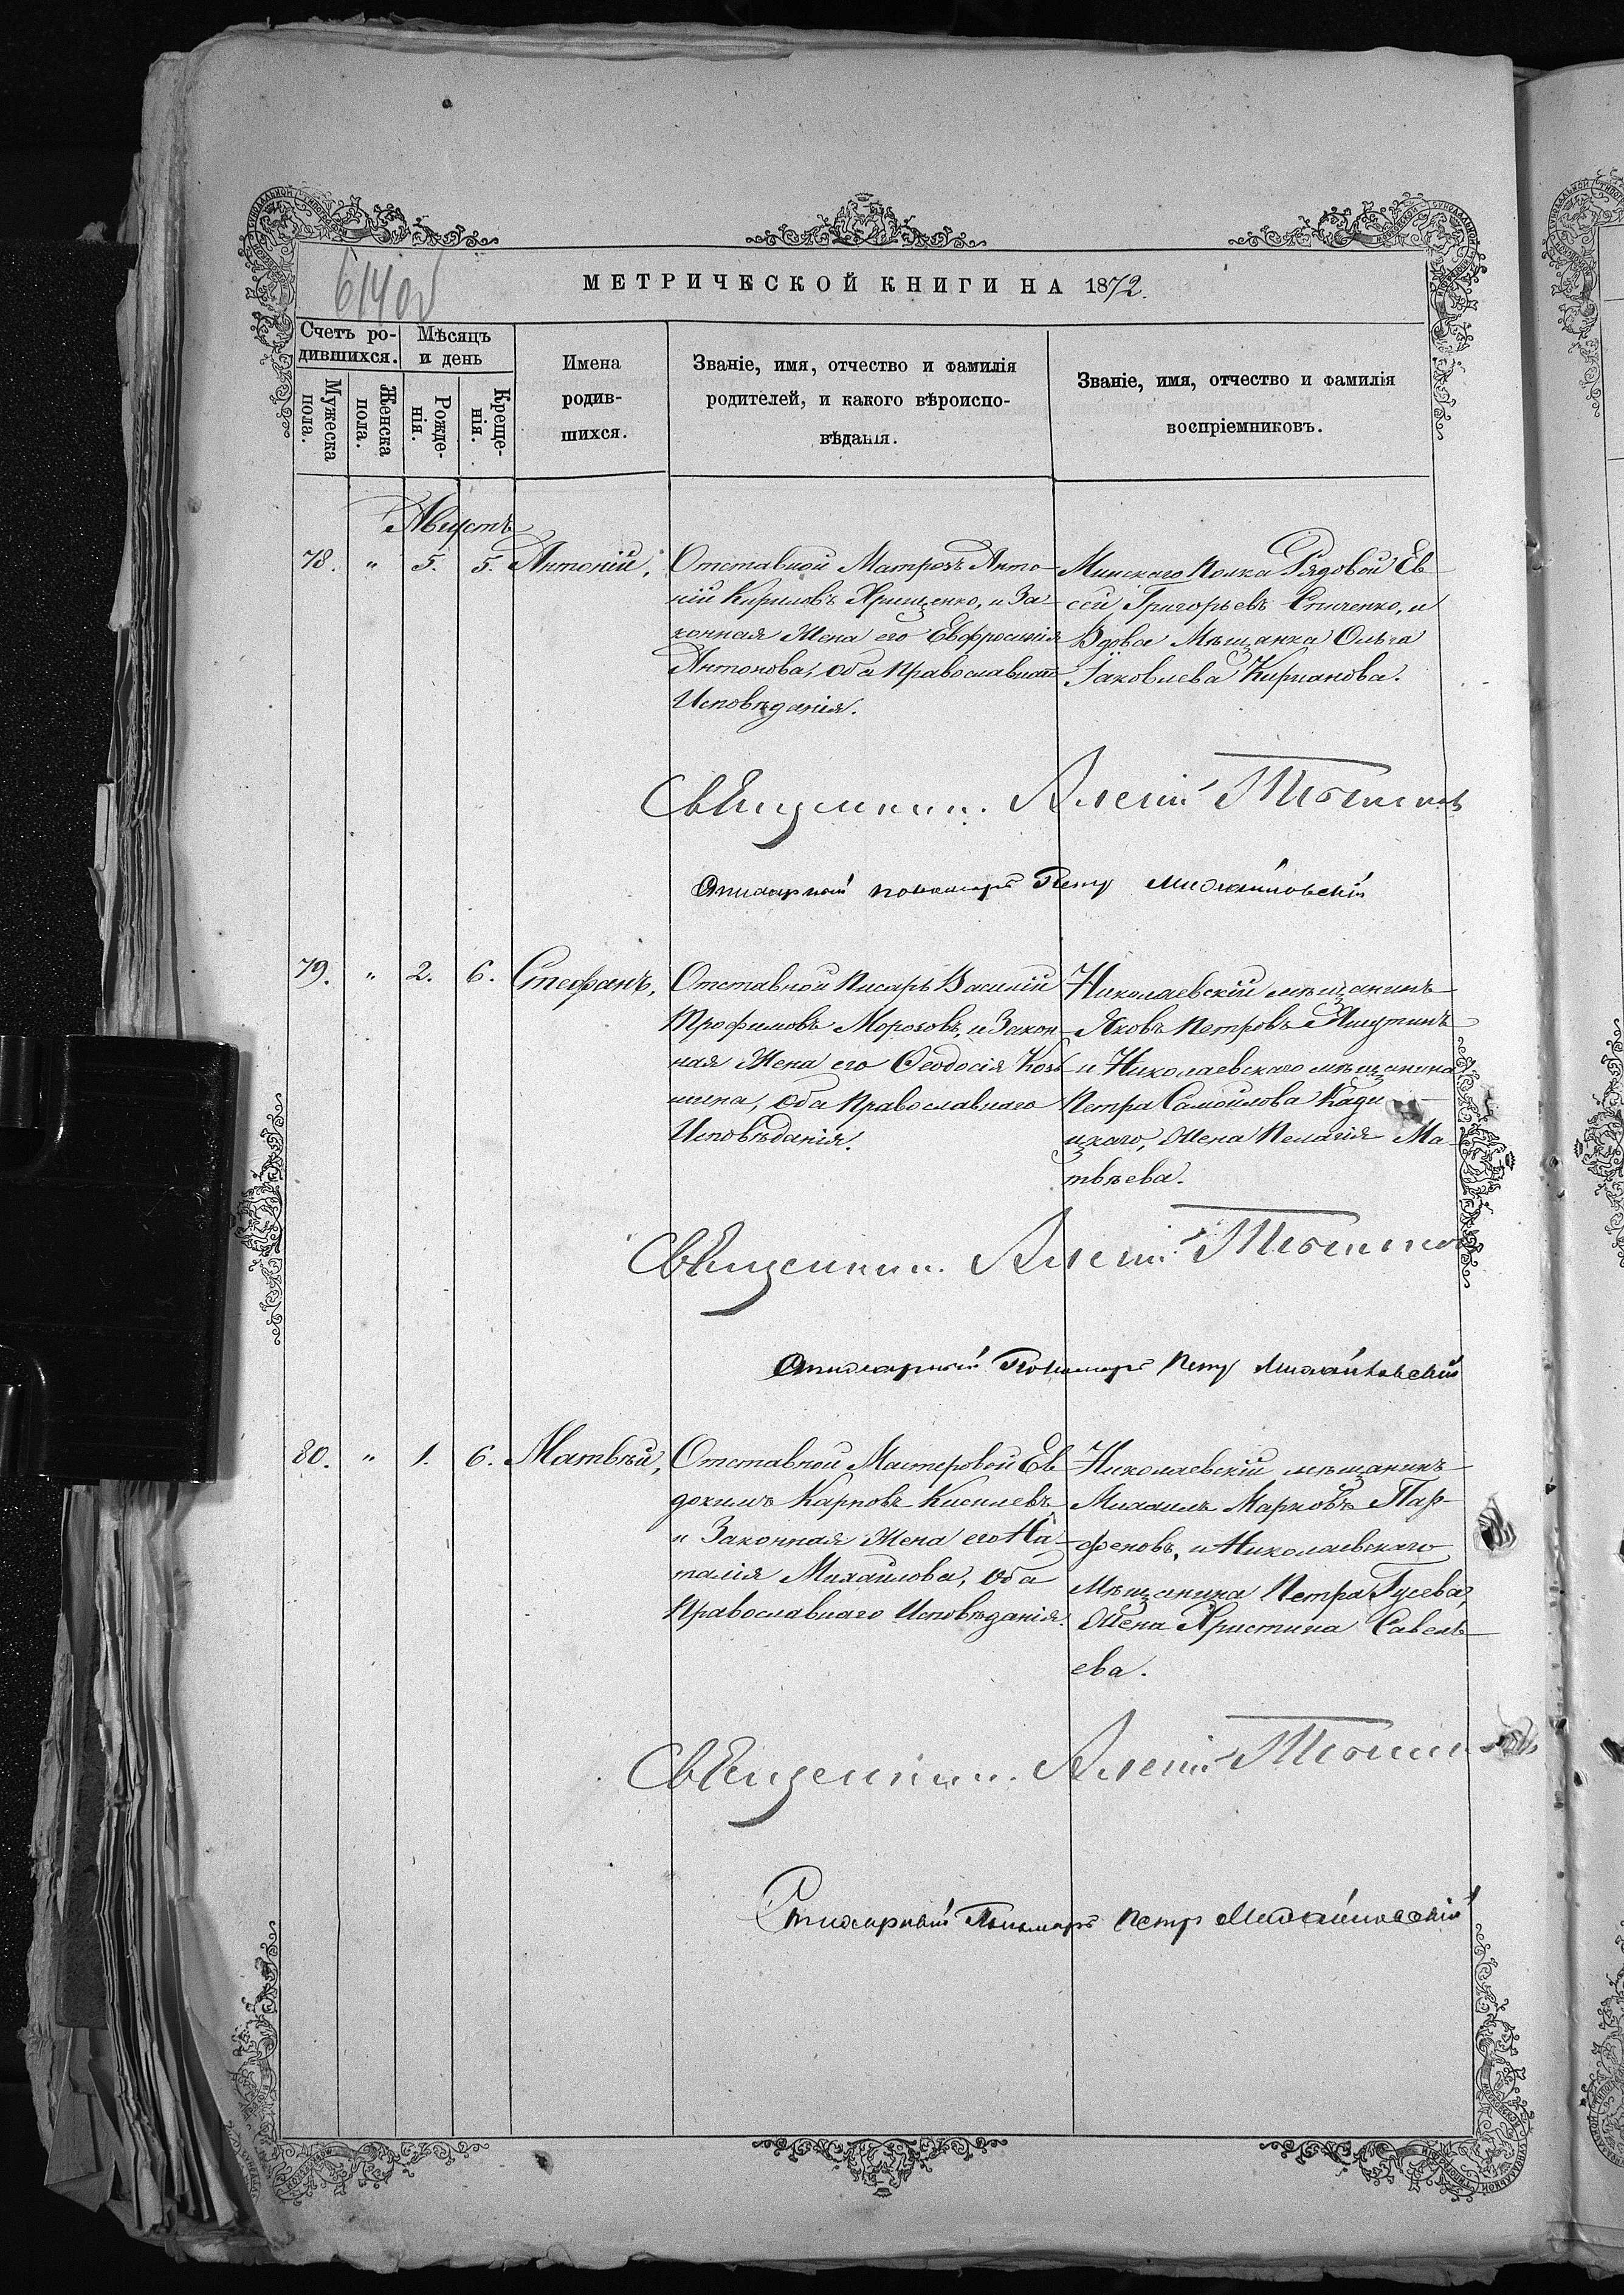 614 об
МЕТРИЧЕСКОЙ КНИГИ НА 1872.
Счетъ ро-
дившихся.
Мужеска
пола.
Женска
пола.
Мѣсяцъ
и день
Рожде-
нія.
Креще-
нія.
Имена
родив-
шихся.
Званіе, имя, отчество и фамилія
родителей, и какого вѣроиспо-
вѣданія.
Званіе, имя, отчество и фамилія
воспріемниковъ.
Августъ
78. " 5. 5. Антоній,
Отставной Матрозъ Анто-
ній Кириловъ Хрищенко, и За-
конная Жена его Евфросинія
Антонова, оба Православнаго
Исповѣданія.
Минскаго Полка Рядовой Ев
сей Григорьевъ Спиченко, и
Вдова Мѣщанка Ольга
Іаковлева Кирианова.
Священник Алексій
Стихарный пономарь Петр Михайловскій
79. " 2. 6. Стефанъ,
Отставной Писарь Василій
Трофимовъ Морозовъ, и Закон-
ная Жена его Феодосія Козь-
мина, оба Православнаго
Исповѣданія.
Николаевскій мѣщанинъ
Яковъ Петровъ
и Николаевскаго мѣщанина
Петра Самойлова Кади
цкаго, Жена Пелагія Ма-
твѣева.
Священник Алексій
Стихарный Пономарь Петр Михайловскій
80. " 1. 6. Матвѣй,
Отставной Мастеровой Ев
докимъ Карповъ Киселевъ
и Законная Жена его На-
талія Михайлова, оба
Православнаго Исповѣданія.
Николаевскій мѣщанинъ
Михаилъ Марковъ Пар-
феновъ, и Николаевскаго
Мѣщанина Петра Гусева,
Жена Христина Савель-
ева.
Священник Алексій
Стихарный Пономарь Петр Михайловскій